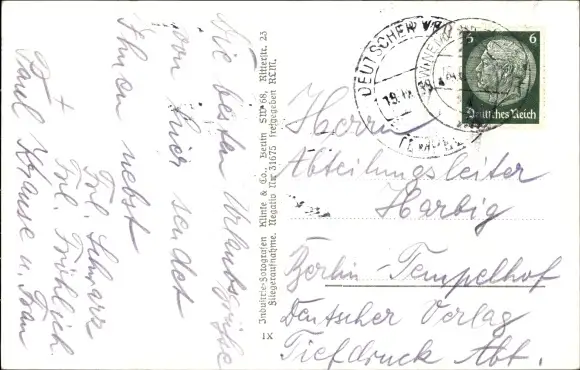 Die besten Urlaubsgrüße
von hier sendet
Ihnen nebst
Frl. Schwarz
+ Frl. Fröhlich
Paul Krause u. Frau
Industrie-Fotografen Klinke & Co., Berlin SW 68, Ritterstr. 23
Fliegeraufnahme. Negativ Nr. 31675 freigegeben RLM.
IX
DEUTSCHER
6 6
Deutsches Reich
Herrn
Abteilungsleiter
Harbig
Berlin-Tempelhof
Deutscher Verlag
Tiefdruck Abt.